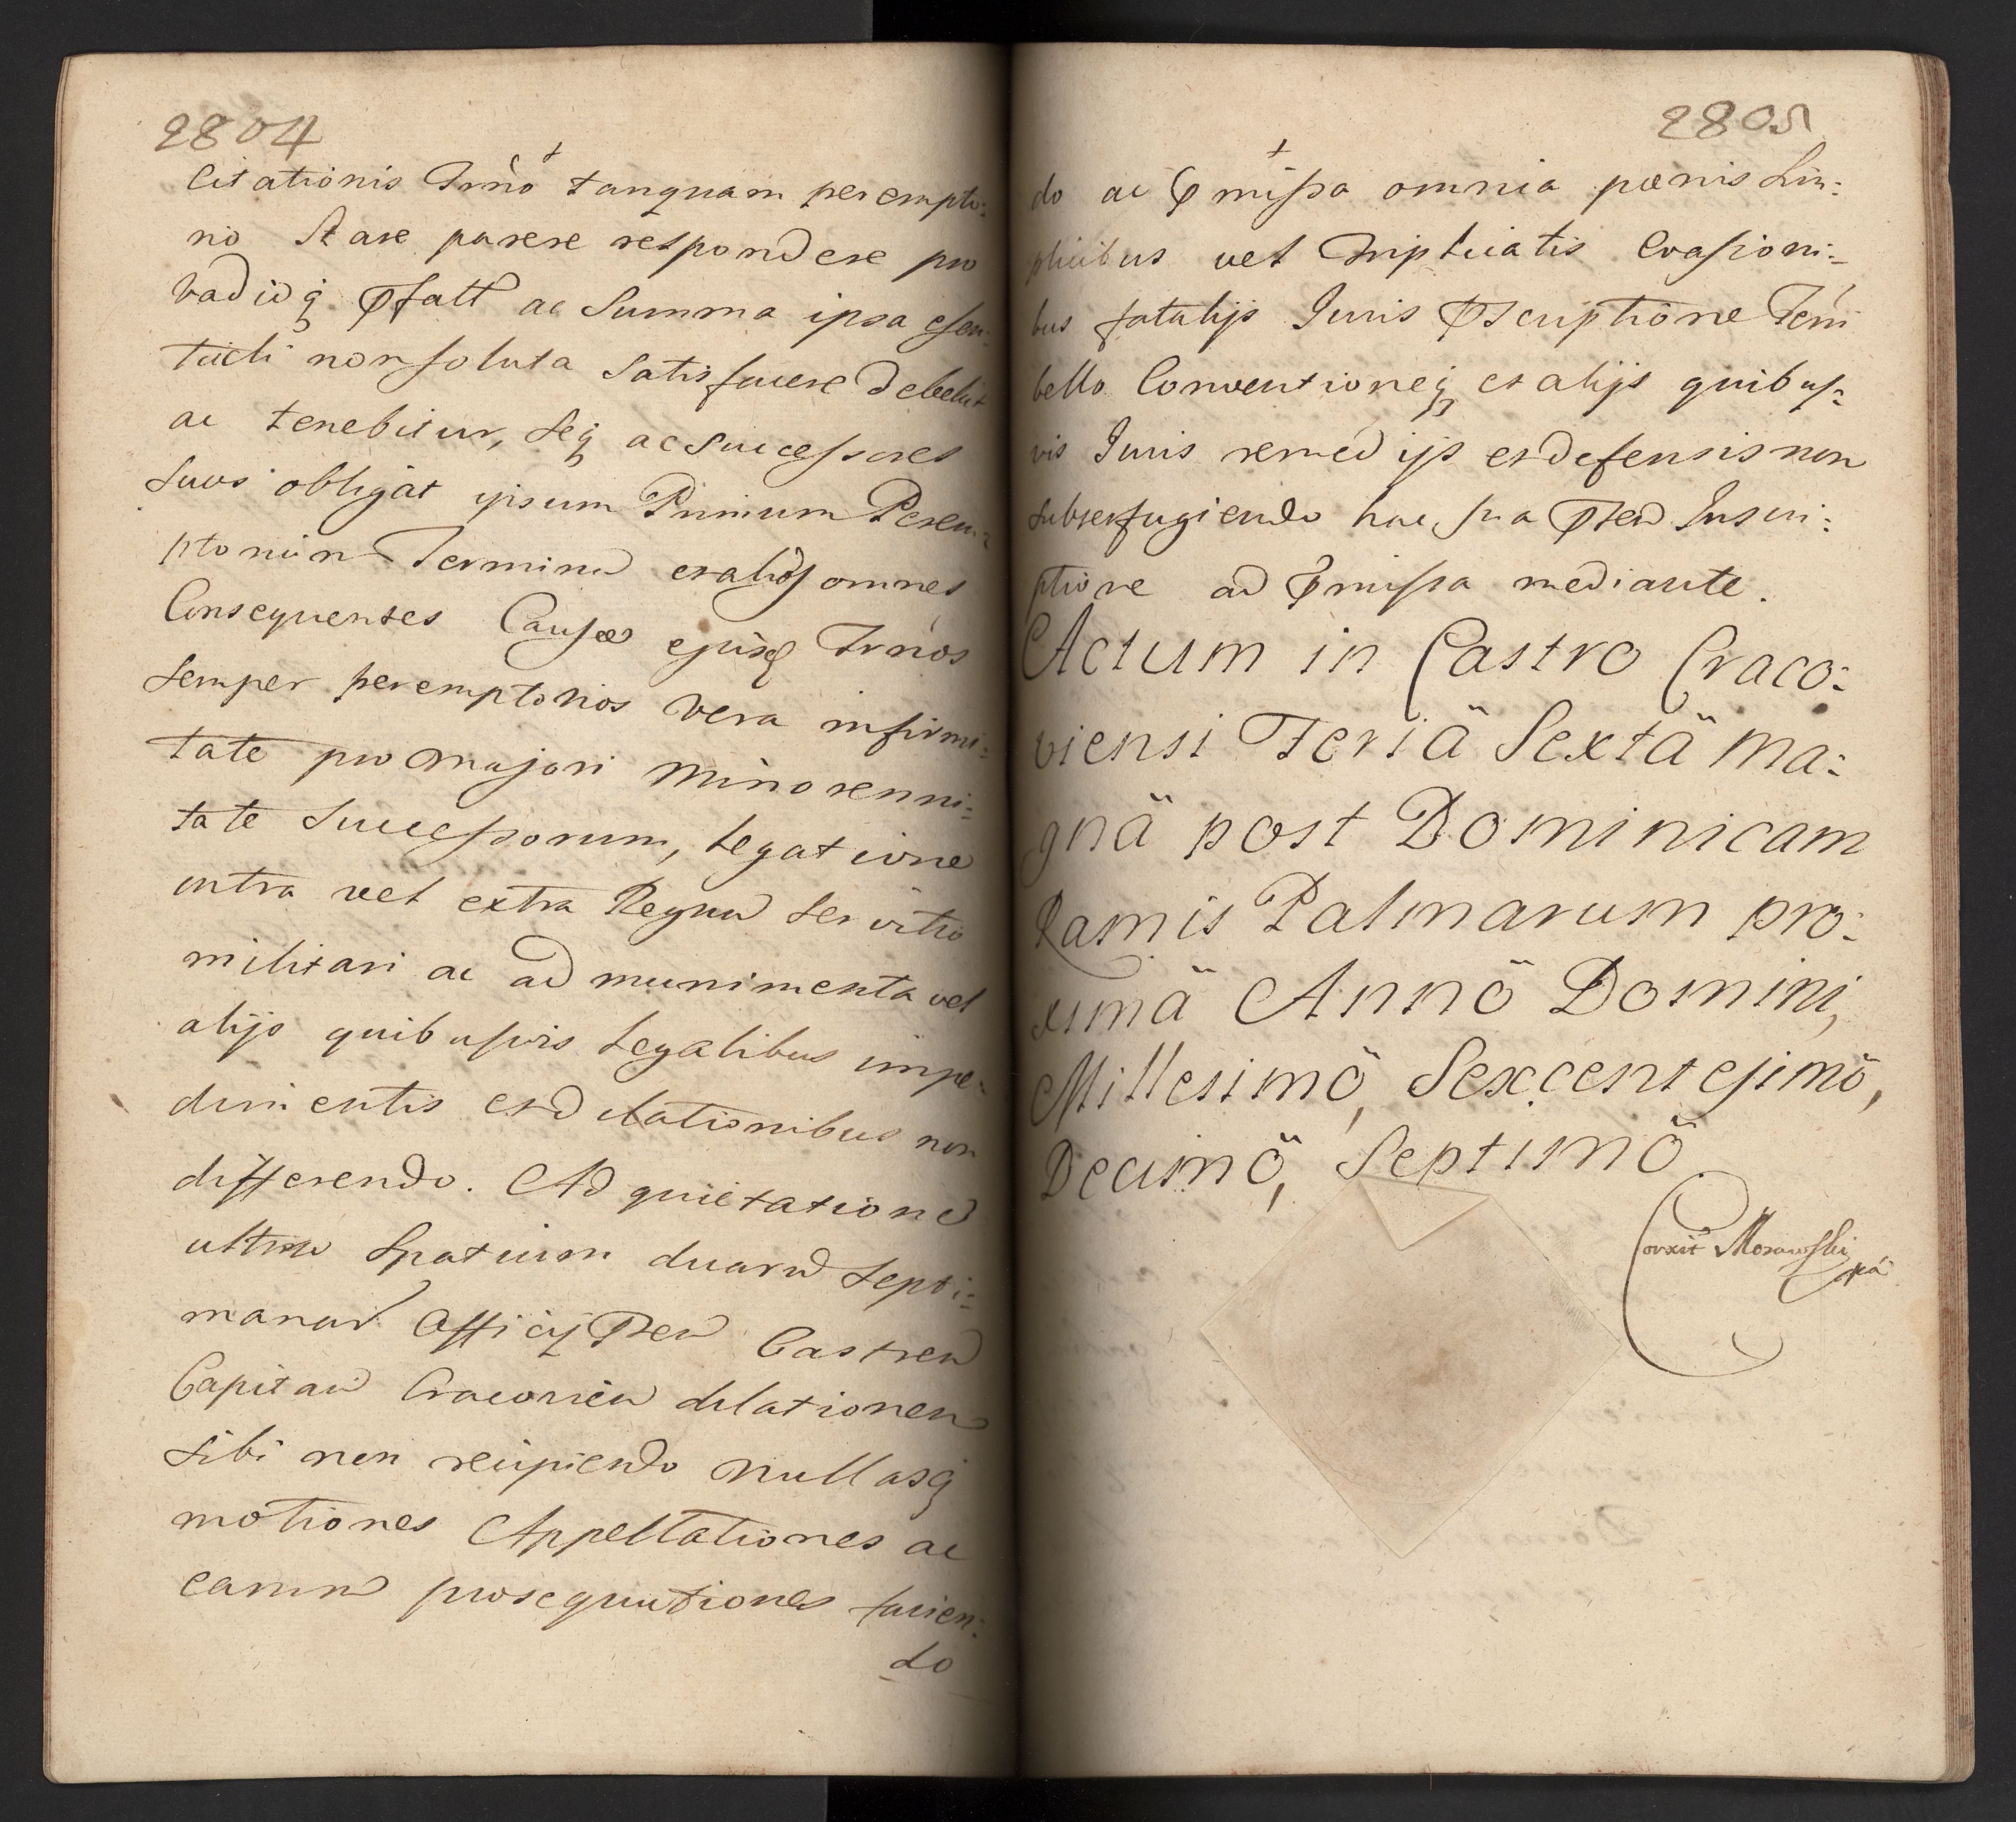 2804
Citationis Trno tanquam perempto:
rio Stare parere respondere pro
vadioq pfatt ac Summa ipsa essen:
tiali non soluta Satisfacere debebit
ac tenebitur, seq ac Successores
suos obligat ipsum Primum Perem:
ptorium Terminu et alios omnes
Consequentes Causæ ejusq Trnos
semper peremptorios vera infirmi:
tate pro majori minorenni:
tate Successorum, legatione
intra vel extra Regnu servitio
militari ac ad munimenta vel
alijs quibusvis legalibus impe:
dimentis et dilationibus non
differendo. Ad quietatione
ultra Spatium duaru septi:
manar Officij Pten Castren
Capitan Cracovien dilationem
sibi non recipiendo nullasq
motiones Appellationes ac
earum prosequutiones facien:
do
2805
do ac pmissa omnia pœnis Sim:
plicibus vel triplicatis Evasioni:
bus fatalijs Juris Pscriptione Terri
bello Conventioneq et alijs quibus:
vis Juris remedijs et defensis non
subterfugiendo hac sua Pten Inscri:
ptione ad Pmissa mediante.
Actum in Castro Craco:
viensi Feriä Sextä Ma:
gnä post Dominicam
Ramis Palmarum pro:
ximä Annö Domini,
Millesimö, Sexcentesimö,
Decimö, Septimö
Corxit Morawski
pa